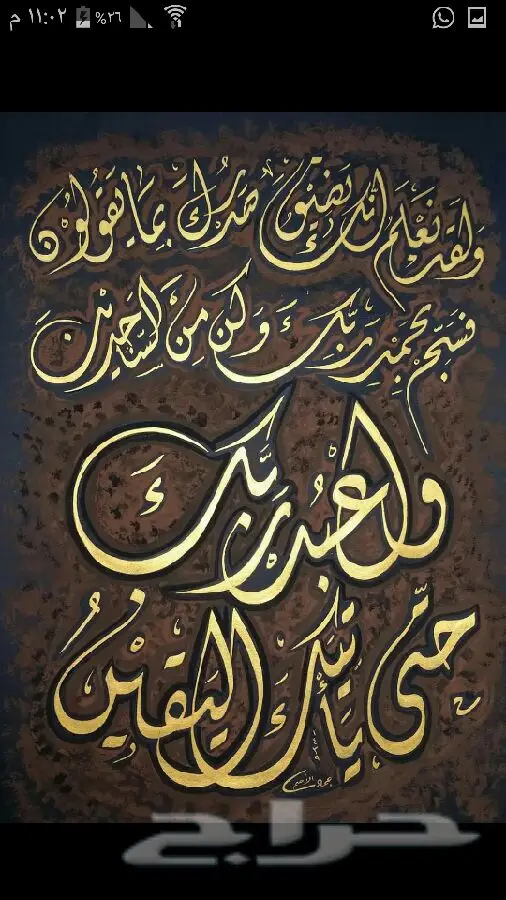 ١١:٠٢ م ٢٦%
وَلَقَد نَعْلَم انَّكَ يَضِيْقُ صَدْرُكَ بِمَا يَقُولُونَ
فَسَبِّحْ بِحَمْدِ رَبِّكَ وَكُن مِنَ السَّاجِدِيْنَ
وَاعْبُدْ رَبَّكَ
حَتَّى يَأتِيَكَ اليَقِيْنُ
حراج